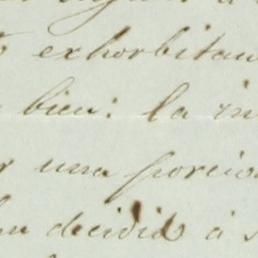 exhorbitan
bien: la in
una porcio
decidió á s